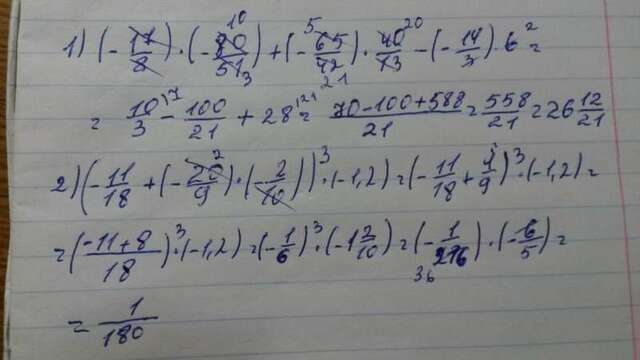 1) (-17/8)·(-80/51)+(-65/42)·40/13-(-14/3)·6=
= 10/3-100/21+28= 70-100+588/21=558/21=26 12/21
2) (-11/18+(-20/9)·(-2/10))³·(-1,2)=(-11/18+4/9)³·(-1,2)=
=(-11+8/18)³·(-1,2)=(-1/6)³·(-1 2/10)=(-1/216)·(-6/5)=
=1/180